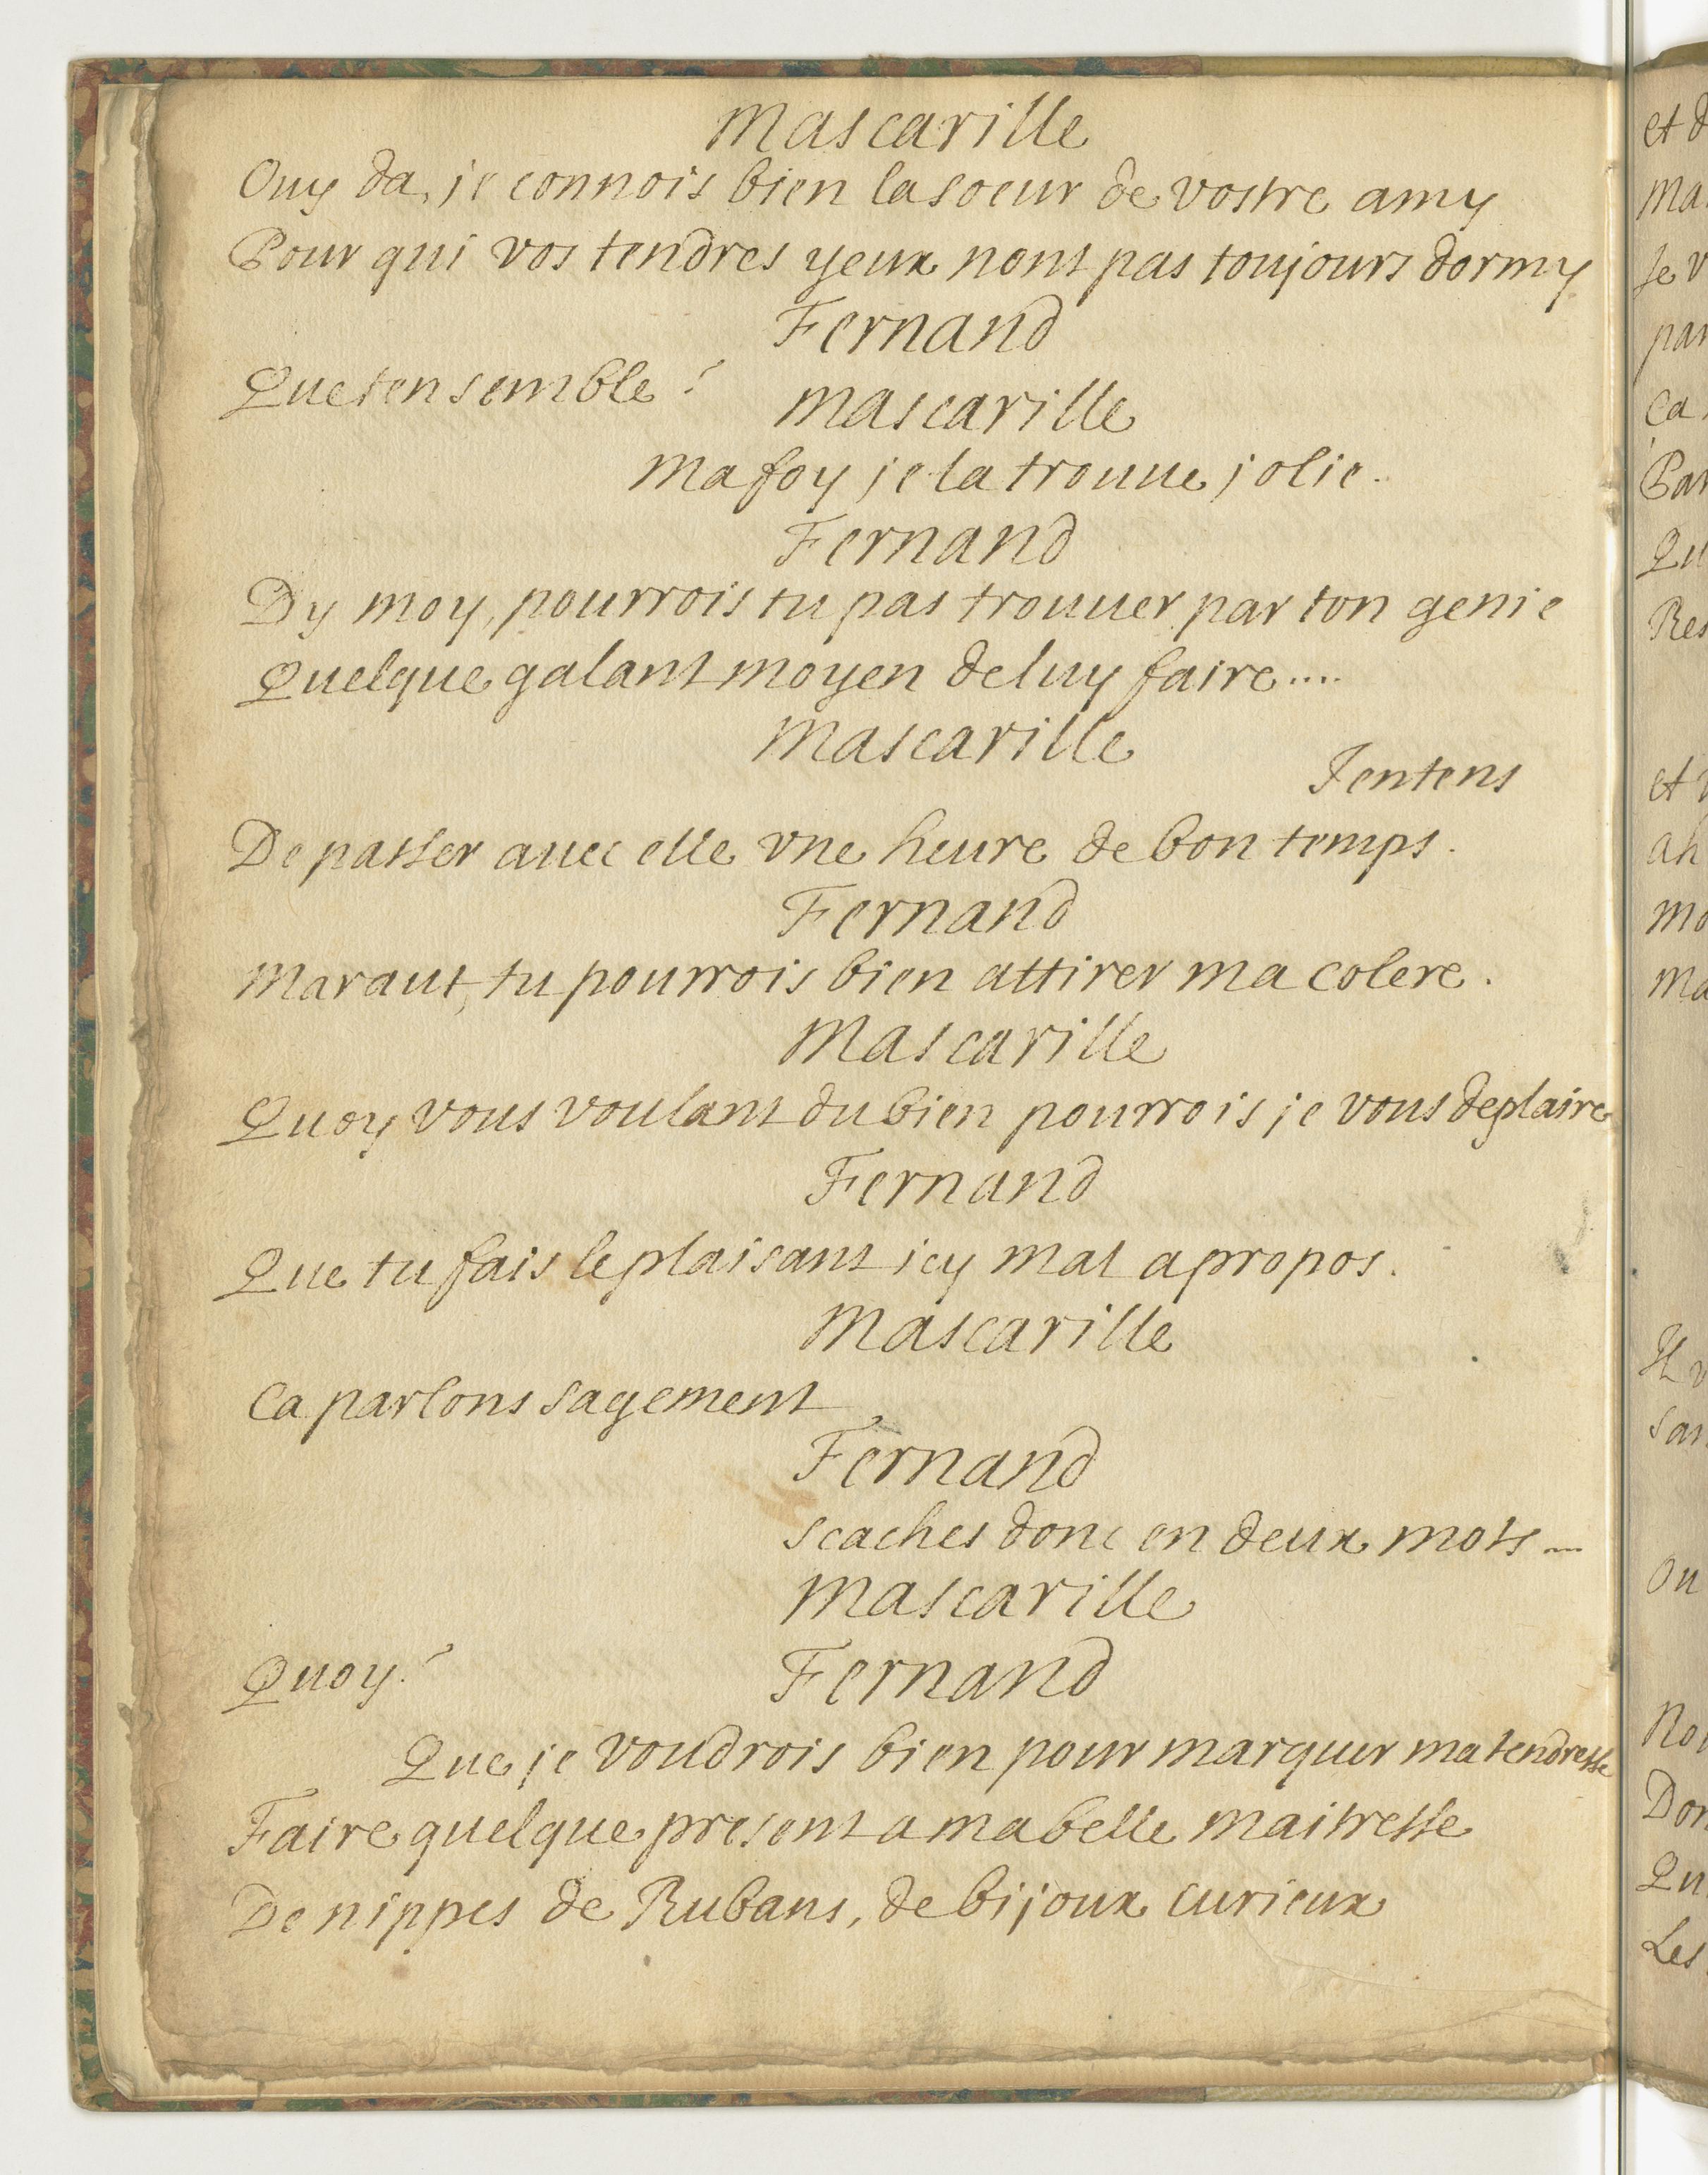 Mascarille
Ouy da, je connois bien la soeur de vostre amy
Pour qui vos tendres yeux nont pas toujours dormy
Fernand
Que ten semble?
Mascarille
Ma foy je la trouue jolie.
Fernand
Dy moy, pourrois tu pas trouuer par ton genie
Quelque galant moyen de luy faire....
Mascarille
Jentens
De passer auec elle vne heure de bon temps.
Fernand
Maraut, tu pourrois bien attirer ma colere.
Mascarille
Quoy vous voulant du bien pourrois je vous deplaire
Fernand
Que tu fais le plaisant icy mal a propos.
Mascarille
Ca parlons sagement
Fernand
scaches donc en deux mots...
Mascarille
Quoy?
Fernand
Que je voudrois bien pour marquer ma tendresse
Faire quelque present a ma belle maitresse
De nippes de Rubans, de bijoux curieux